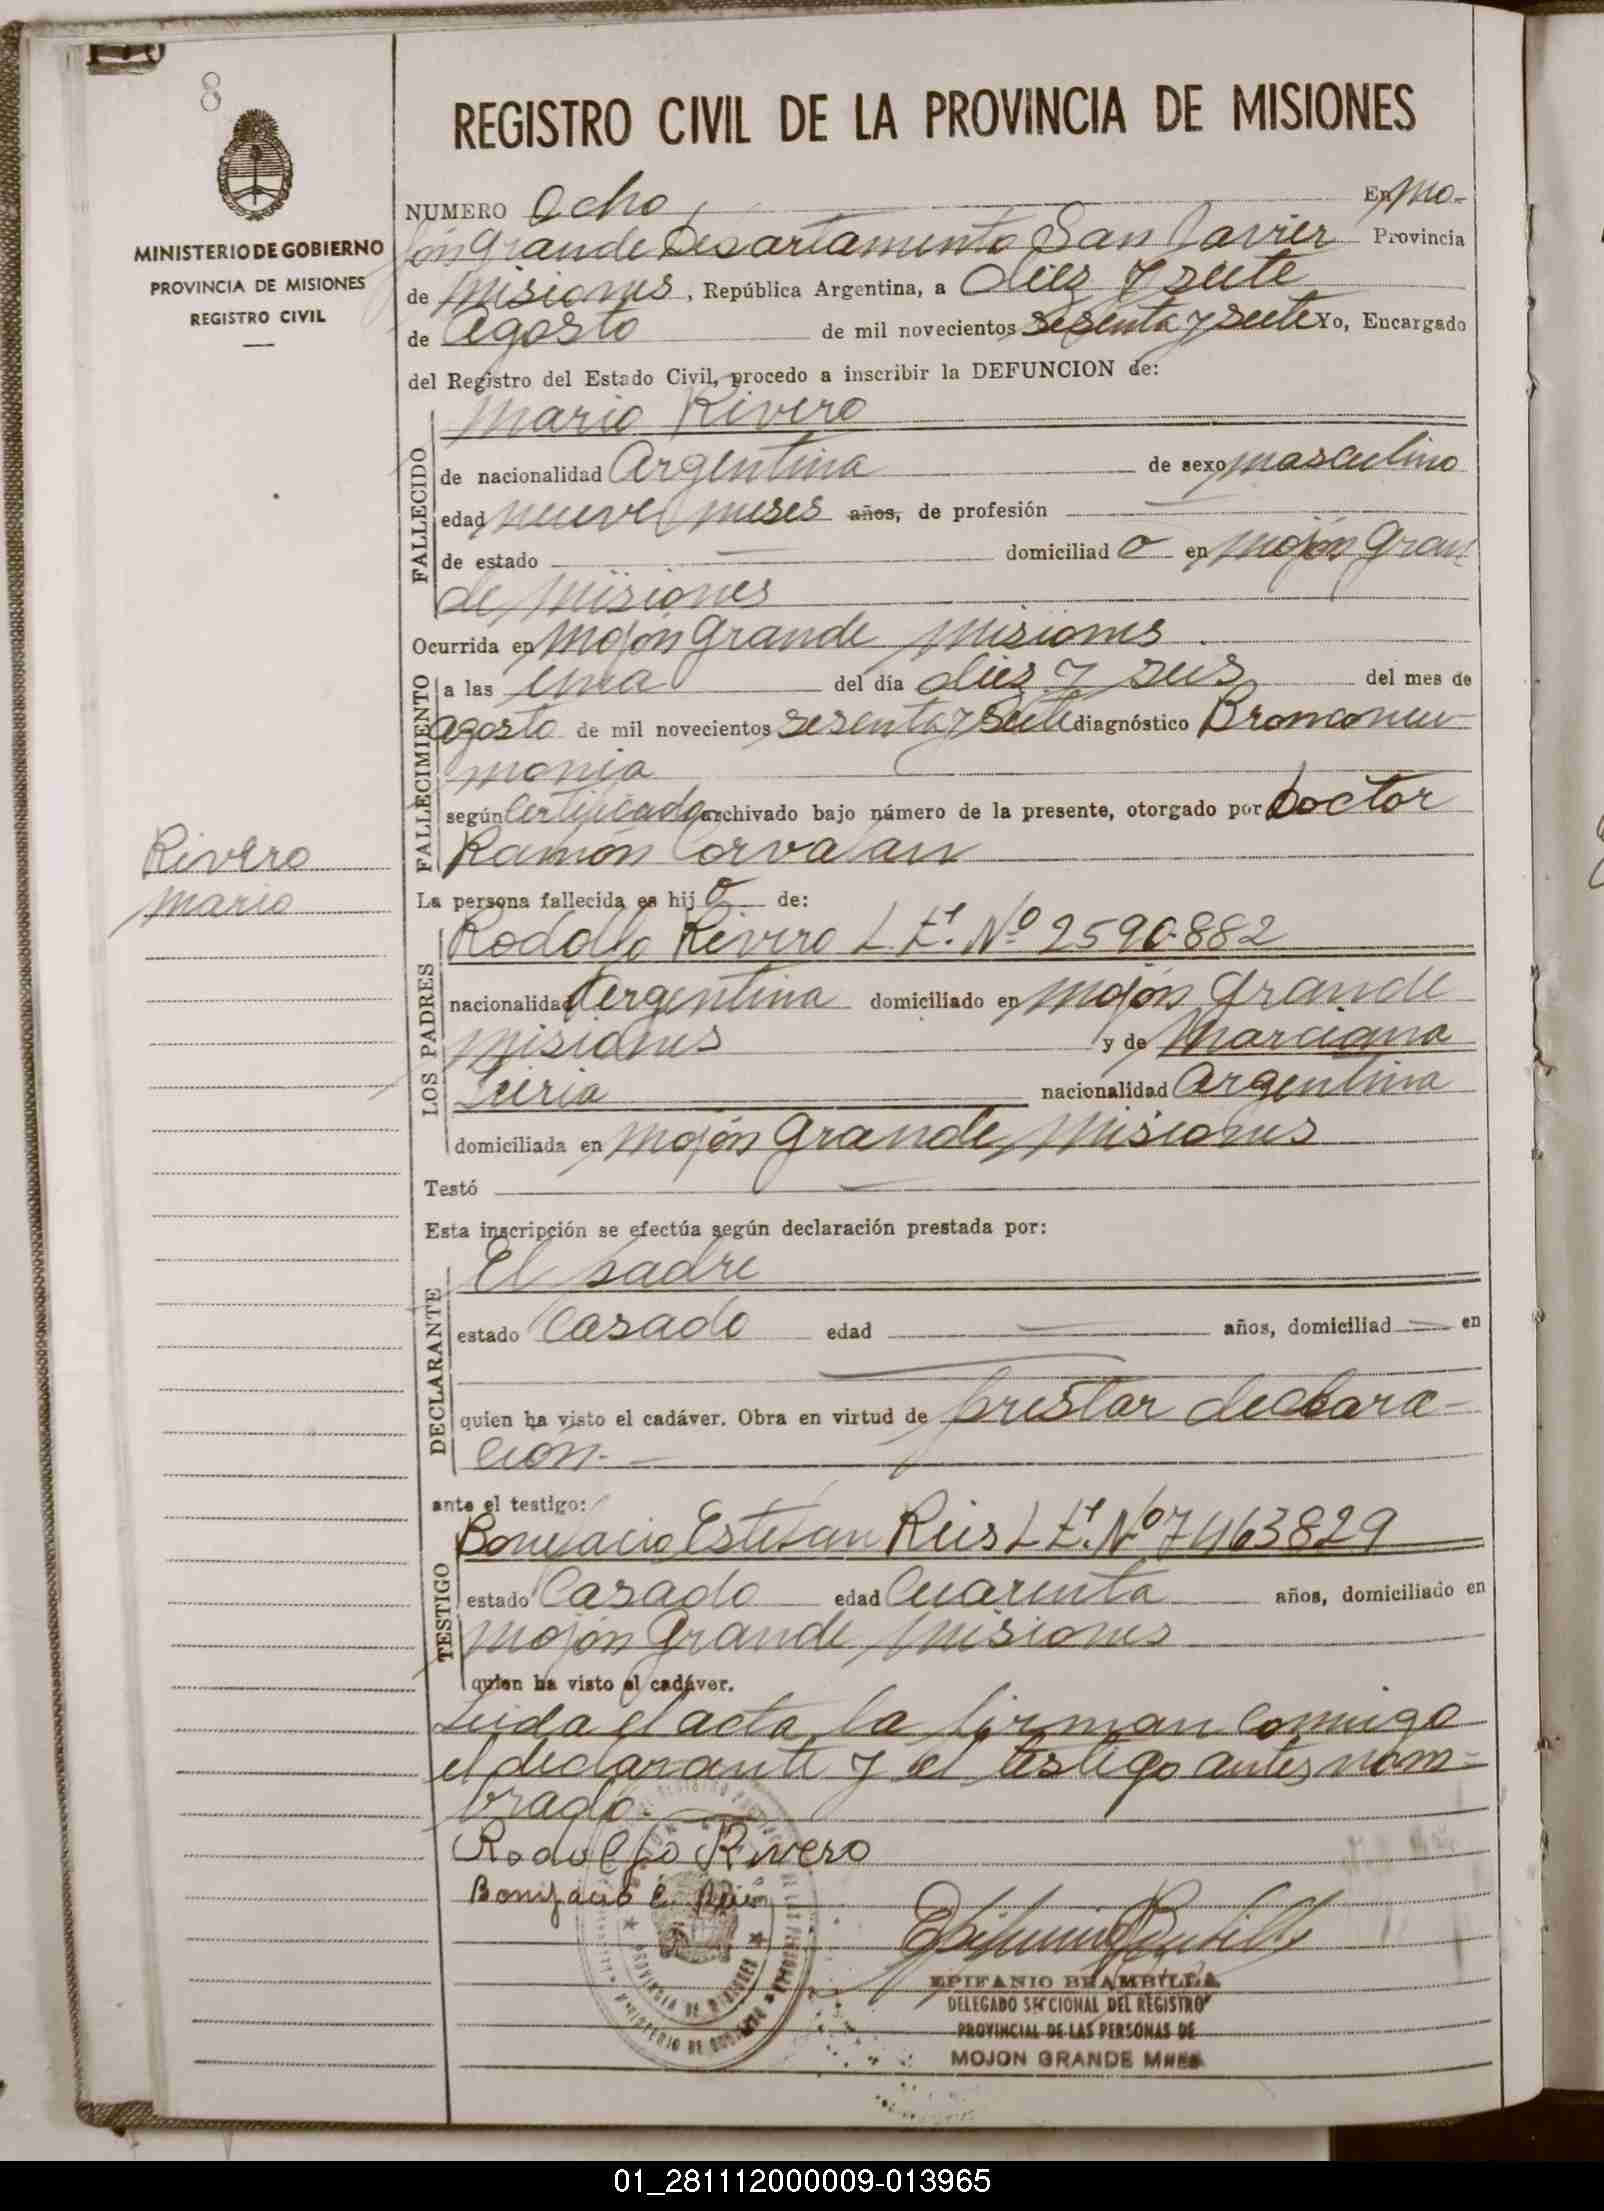 8
MINISTERIO DE GOBIERNO
PROVINCIA DE MISIONES
REGISTRO CIVIL
REGISTRO CIVIL DE LA PROVINCIA DE MISIONES
NUMERO Ocho En Mo-
jón Grande Departamento San Javier Provincia
de Misiones, República Argentina, a diez y siete
de Agosto de mil novecientos sesenta y siete Yo, Encargado
del Registro del Estado Civil, procedo a inscribir la DEFUNCION de:
FALLECIDO
Mario Rivero
de nacionalidad Argentina de sexo masculino
edad nueve meses años, de profesión —
de estado — domiciliado en Mojón Gran
de Misiones
Ocurrida en Mojón Grande Misiones
FALLECIMIENTO
a las una del día diez y seis del mes de
agosto de mil novecientos sesenta y siete diagnóstico Bronconeu-
monia
según Certificado archivado bajo número de la presente, otorgado por Doctor
Ramón Corvalan
Rivero
Mario
La persona fallecida es hijo de:
LOS PADRES
Rodolfo Rivero L Et. Nº 2590.882
nacionalidad Argentina domiciliado en Mojón Grande
Misiones y de Marciana
nacionalidad Argentina
domiciliada en Mojón Grande, Misiones
Testó —
Esta inscripción se efectúa según declaración prestada por:
DECLARANTE
El padre
estado Casado edad — años, domiciliad — en
—
quien ha visto el cadáver. Obra en virtud de prestar declara-
cion.-
ante el testigo:
TESTIGO
Bonifacio Esteban Reis L Et. Nº 7463829
estado Casado edad Cuarenta años, domiciliado en
Mojón Grande, Misiones
quien ha visto el cadáver.
Leida el acta, la firman conmigo
el declarante y el testigo antes nom-
brado.
Rodolfo Rivero
Bonifacio E.
EPIFANIO BRAMBILLA
DELEGADO SECCIONAL DEL REGISTRO
PROVINCIAL DE LAS PERSONAS DE
MOJON GRANDE Mnes
PROVINCIA DE MISIONES
MINISTERIO DE GOBIERNO
01_281112000009-013965